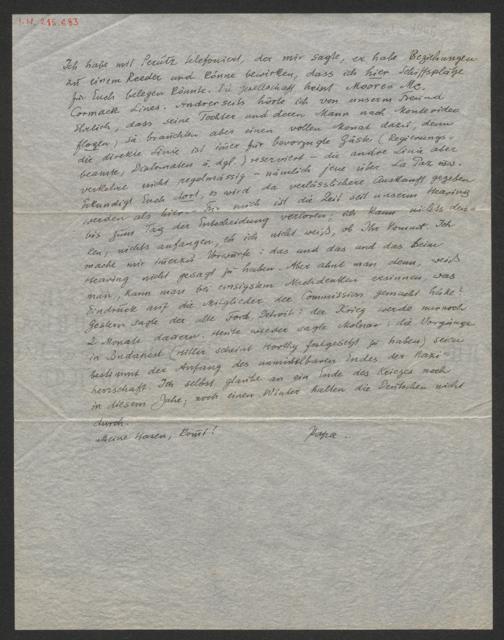 I.N. 215.283
Ich habe mit Perutz telefoniert, der mir sagte, er habe Beziehungen
zu einem Reeder und könne bewirken, dass ich hier Schiffsplätze
für Euch belegen könnte. Die Gesellschaft heisst Moores Mc.
Cormack Lines. Andrerseits hörte ich von unserm Freund
Ehrlich, dass seine Tochter und deren Mann nach Montevideo
flogen; sie brauchten aber einen vollen Monat dazu, denn
die direkte Linie ist für bevorzugte Gäste (Regierungs-
beamte, Diplomaten u. dgl.) reserviert – die andre Linie aber
verkehre nicht regelmässig – nämlich jene über La Paz usw.
Erkundigt Euch dort, es wird da verlässlichere Auskunft gegeben
werden als hier. – Für mich ist die Zeit seit unserem Hearing
bis zum Tag der Entscheidung verloren; ich kann nichts den-
ken, nichts anfangen, eh ich nicht weiß, ob Ihr kommt. Ich
mache mir Vorwürfe: das und das und das beim
Hearing nicht gesagt zu haben. Aber ahnt man denn, weiß
man, kann man bei emsigstem Nachdenken ersinnen was
Eindruck auf die Mitglieder der Commission gemacht hätte!
Gestern sagte der alte Ford, Detroit: der Krieg werde nur noch
2 Monate dauern. Heute wieder sagte Molnar: die Vorgänge
in Budapest (Hitler scheint Horthy festgesetzt zu haben) seien
bestimmt der Anfang des unmittelbaren Endes der Nazi
herrschaft. Ich selbst glaube an ein Ende des Krieges noch
in diesem Jahr; noch einen Winter halten die Deutschen nicht
durch.
Meine Hasen, kommt! Papa.